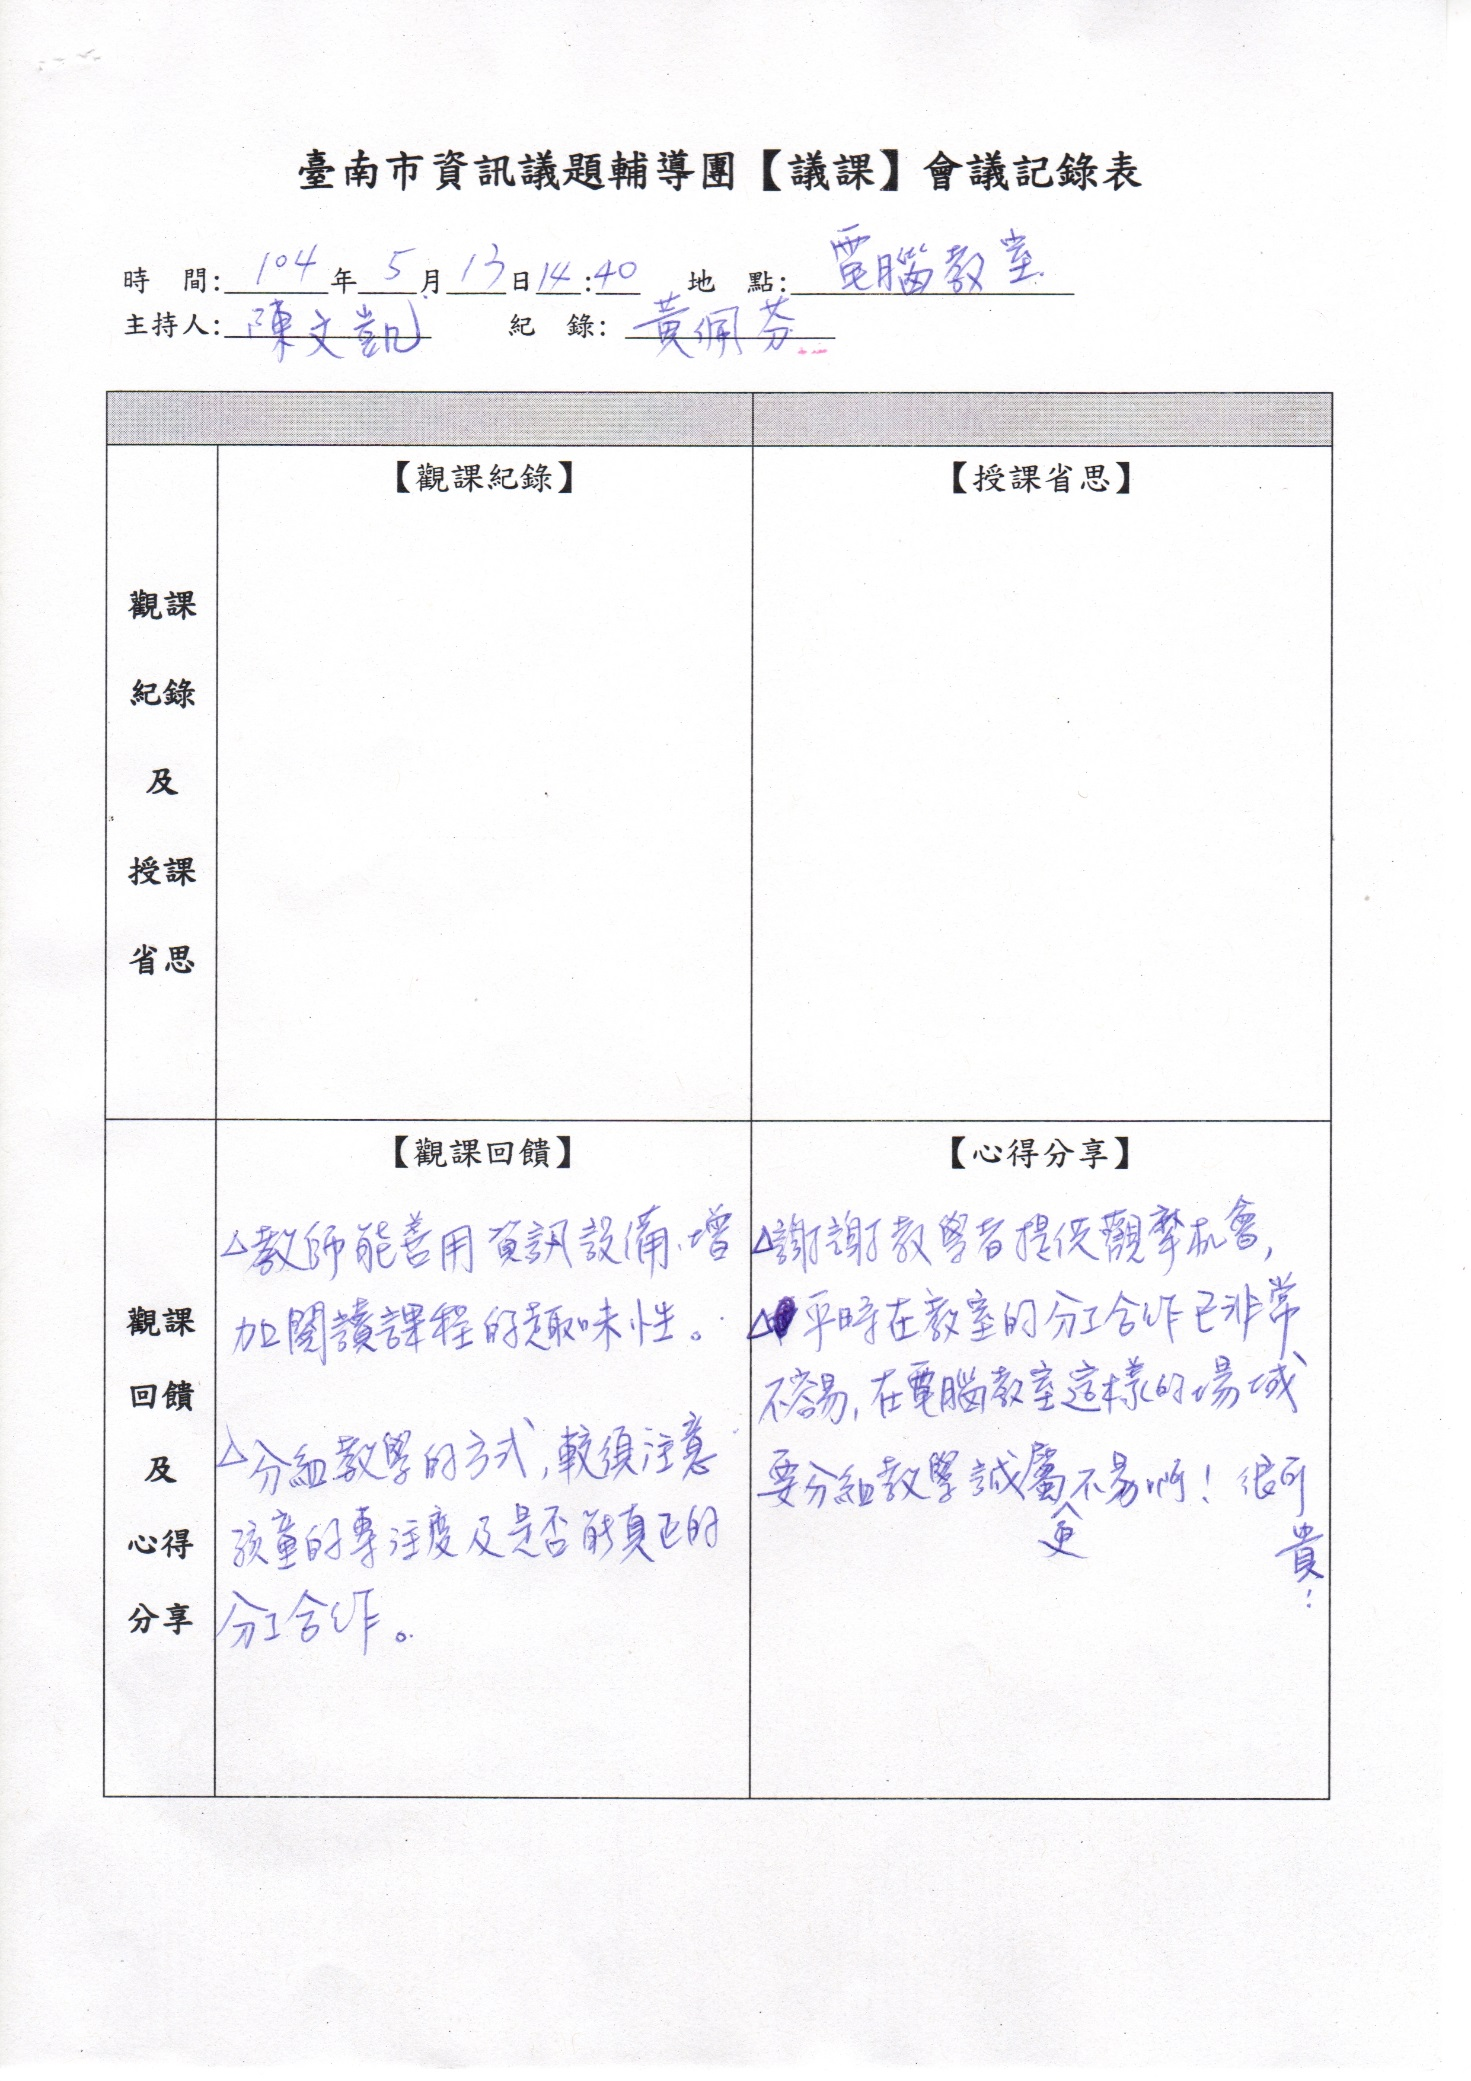 臺南市資訊議題輔導團【議課】會議記錄表
時 間:104年5月13日14:40 地 點:電腦教室
主持人:陳文凱 紀 錄:黃佩芬
【觀課紀錄】
【授課省思】
觀課
紀錄
及
授課
省思
觀課
回饋
及
心得
分享
【觀課回饋】
△教師能善用資訊設備、增
加閱讀課程的趣味性。
△分組教學的方式,較須注意
孩童的專注度及是否能真正的
分工合作。
【心得分享】
△謝謝教學者提供觀摩机會,
△平時在教室的分工合作已非常
不容易,在電腦教室這樣的場域
要分組教學誠屬更不易啊!很可
貴!